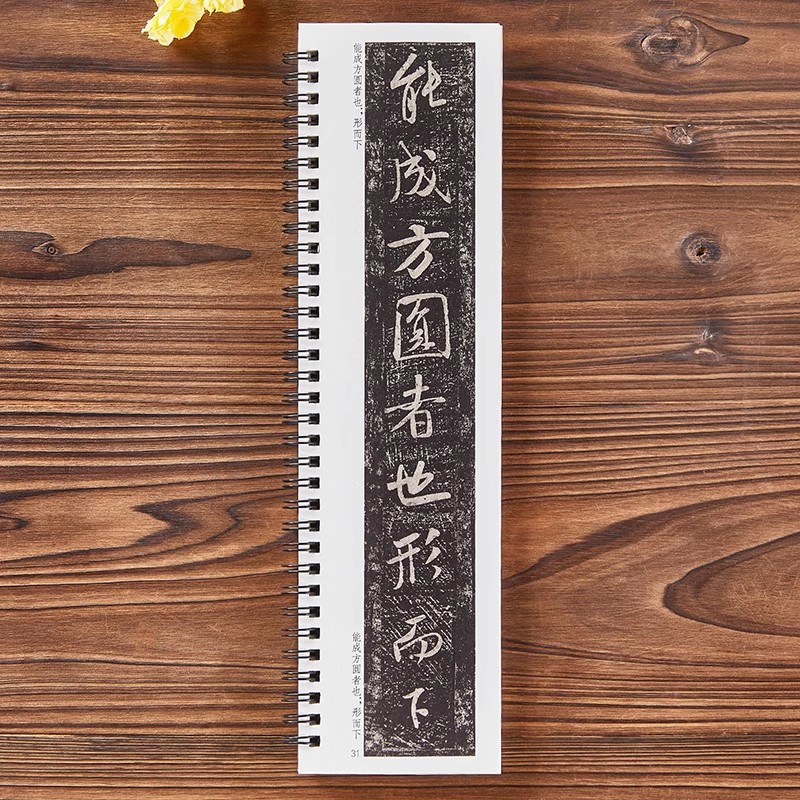 能成方圆者也；形而下
能成方圓者也形而下
能成方圆者也；形而下
31